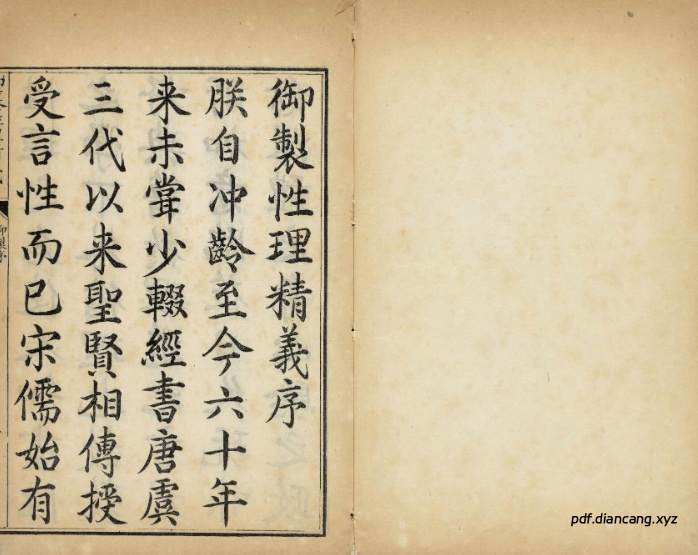 御製性理精義序
朕自冲齡至今六十年
来未甞少輟經書唐虞
三代以来聖賢相傳授
受言性而已宋儒始有
御製序
pdf.diancang.xyz